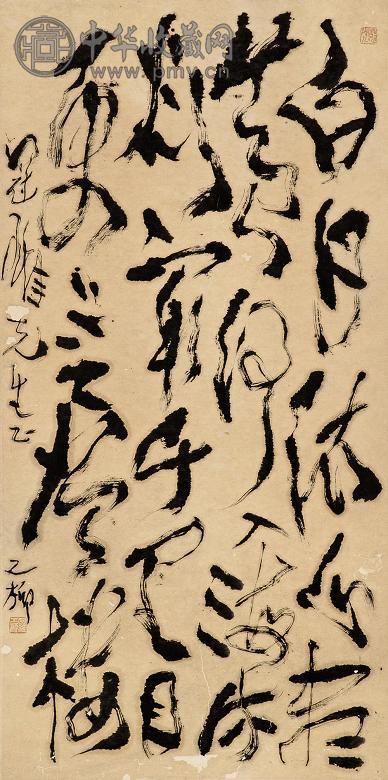 中华收藏网
www.pmv.cn
白日依山尽
黄河入海流
欲窮千里目
更上一層樓
先生正